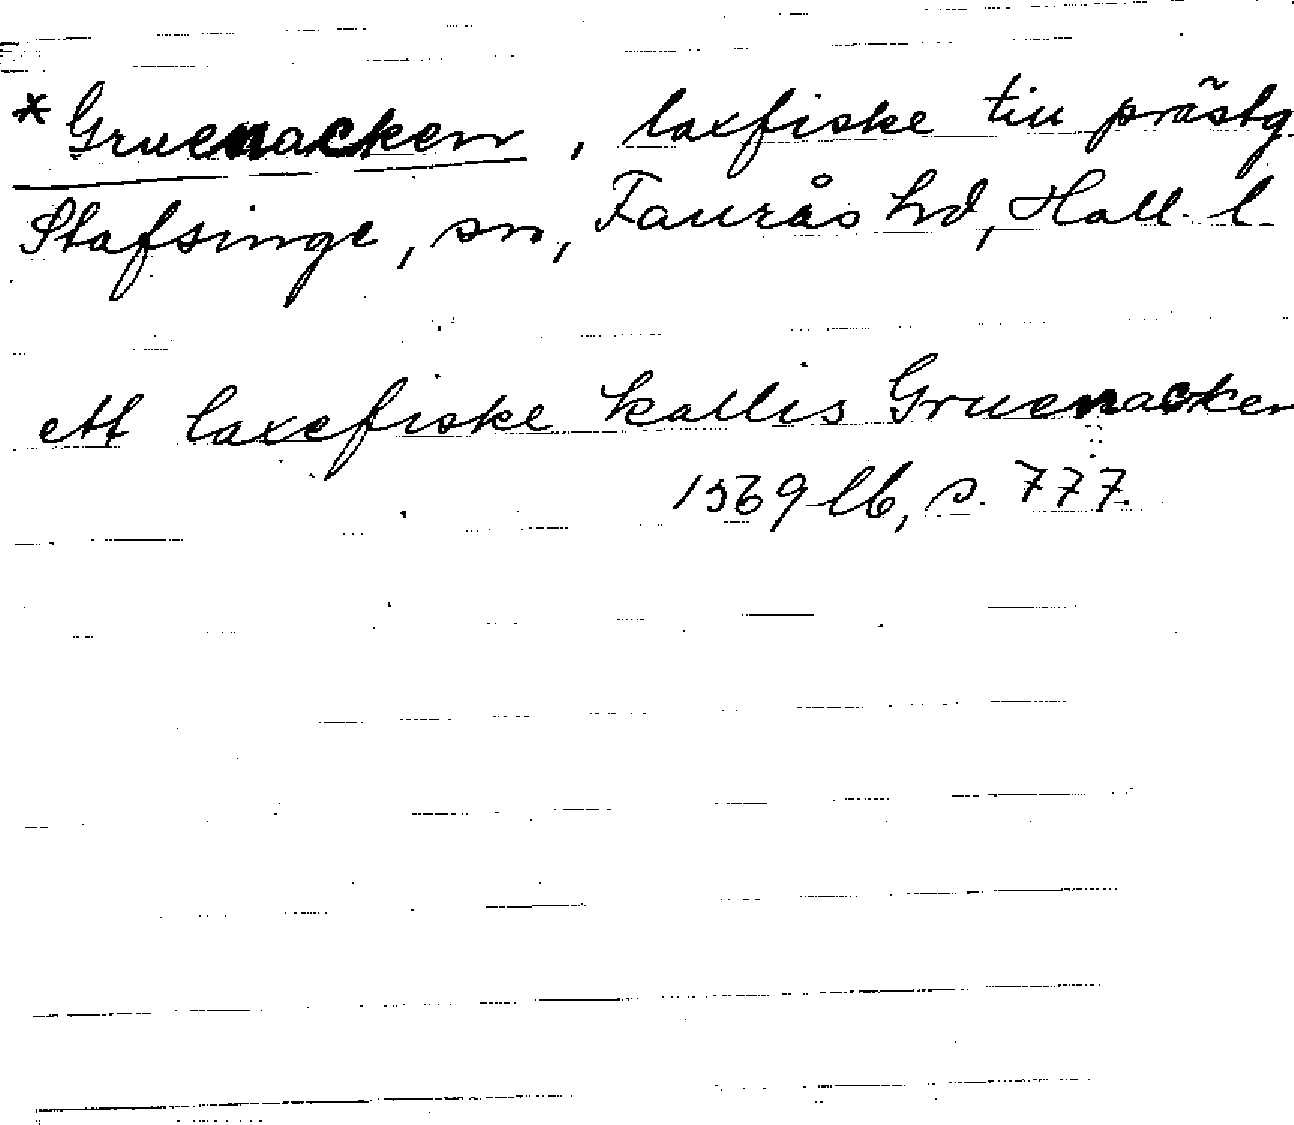 *Gruenacken, laxfiske till prästg.
Stafsinge, sn, Faurås hd, Hall. l.
ett laxefiske kallis Gruenacken
1569 lb, s. 777.